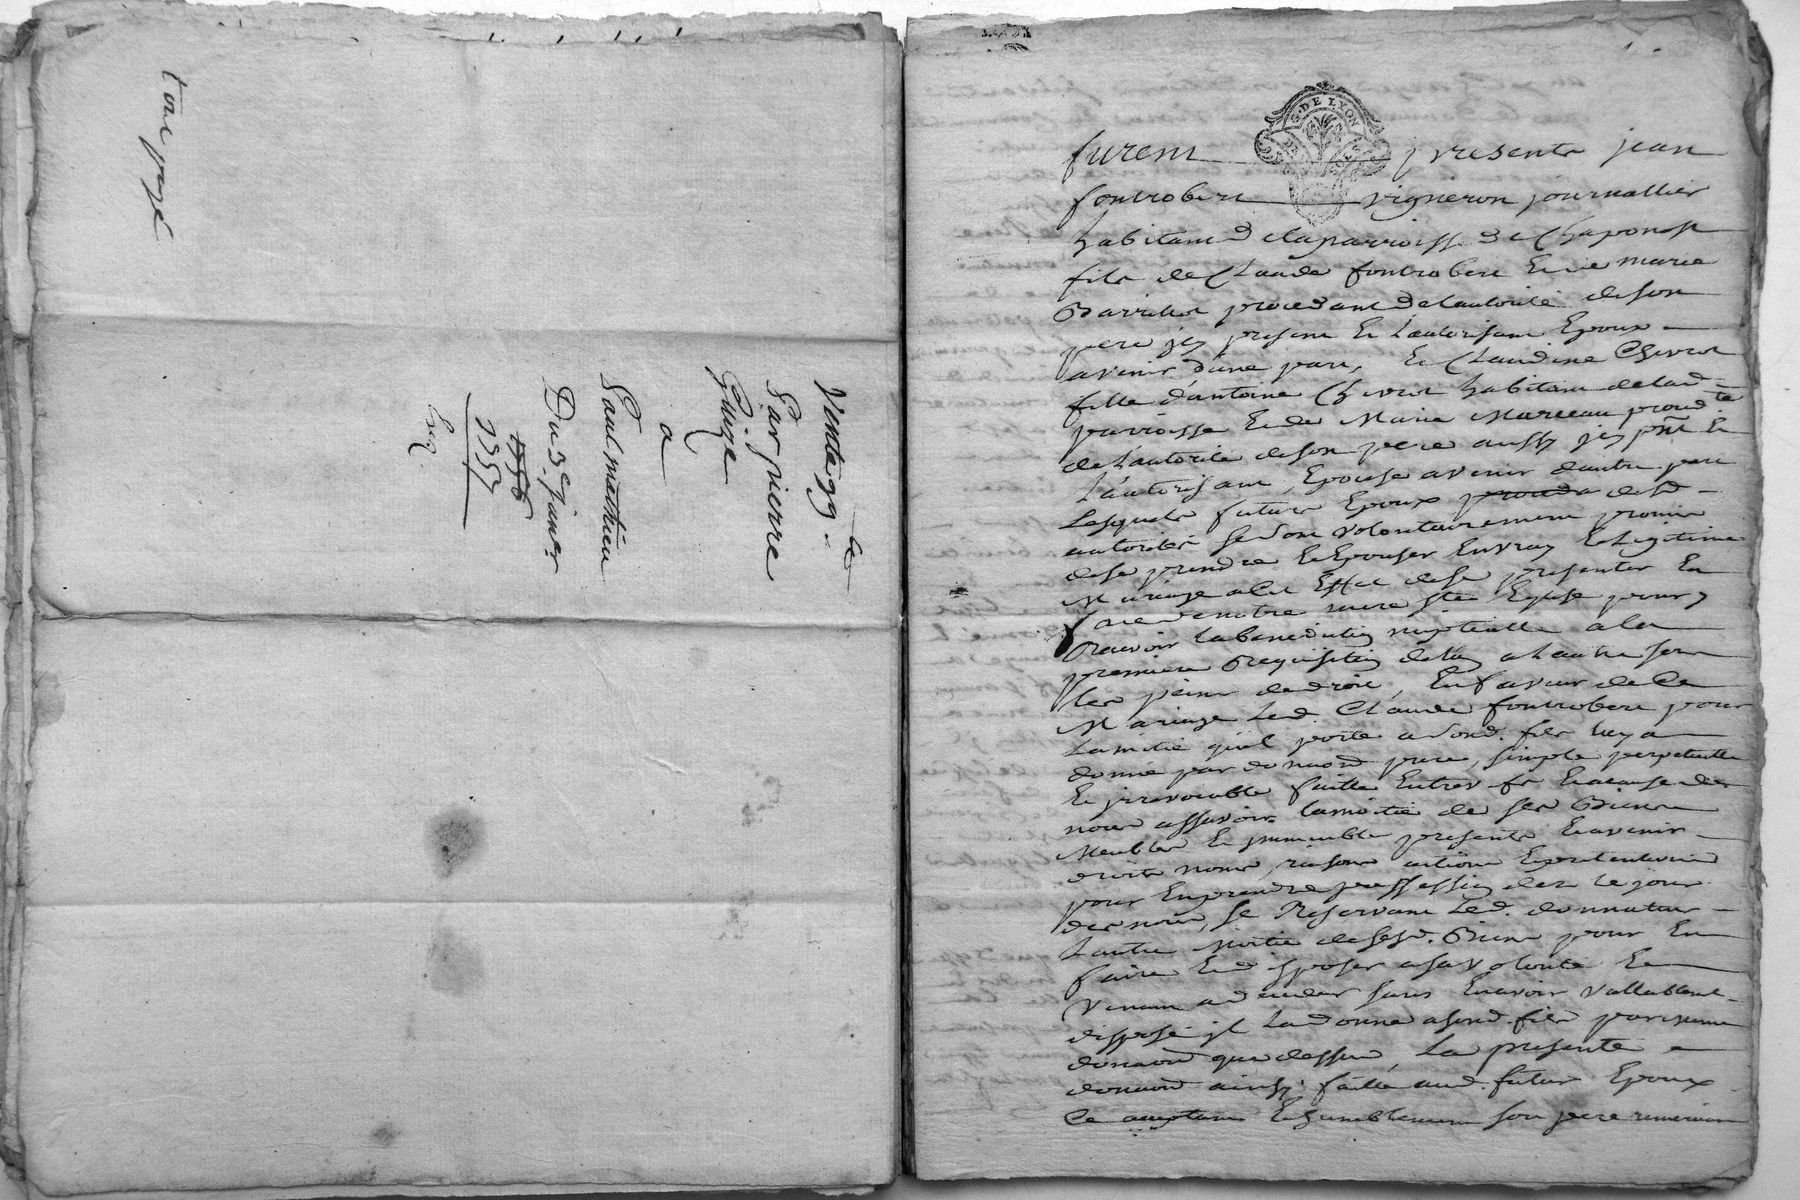 tout payé
Vente 99
Par pierre
Guize
a
Paul mathieu
Du 3e janer
1756
1757
Enr.
G. DE LYON
furent presents jean
fontrobert vigneron journallier
habitant de la parroisse de Chaponost
fils de Claude fontrobert Et de marie
procedant de lautorité de son
pere jcy present Et Lautorisant Epoux
avenir d'une part, Et Claudine Chevrot
fille d'antoine Chevrot habitant de lad
parroisse Et de Marie
de Lautorité de son pere aussy jcy pnt Et
Lautorisant, Epouse avenir dautre part
Lesquels futurs Epoux
autorités se sont volontairement promis
de se prendre Et Epouser En vray Et Legitime
Mariage a Cet Effet de se presenter En
face de notre mere ste Eglise pour y
recevoir La benediction nuptialle a la
premiere Requisition de lun a Lautre sous
les peines de droit, En faveur de Ce
Mariage Led. Claude fontrobert pour
Lamitié quil porte a sond. fils luy a
donné par donnaon pure, simple perpetuelle
Et jrrevocable faitte Entre vifs Et a cause de
nous assavoir la moitié de ses Biens
Meubles Et jmmeubles presents Et avenir
droits noms, raisons actions Et pretentions
pour En prendre possession des ce jour
se Reservant Led. donnateur
Lautre Moitié de sesd. Biens pour En
faire Et disposer a sa volonté Et
Venant a deceder sans En avoir vallablemt
disposé jl La donne a sond. fils par mesme
donnaon que dessus, La presente
donnaon ainsy faitte aud. futur Epoux
Ce acceptant Et humblement son pere remerciant